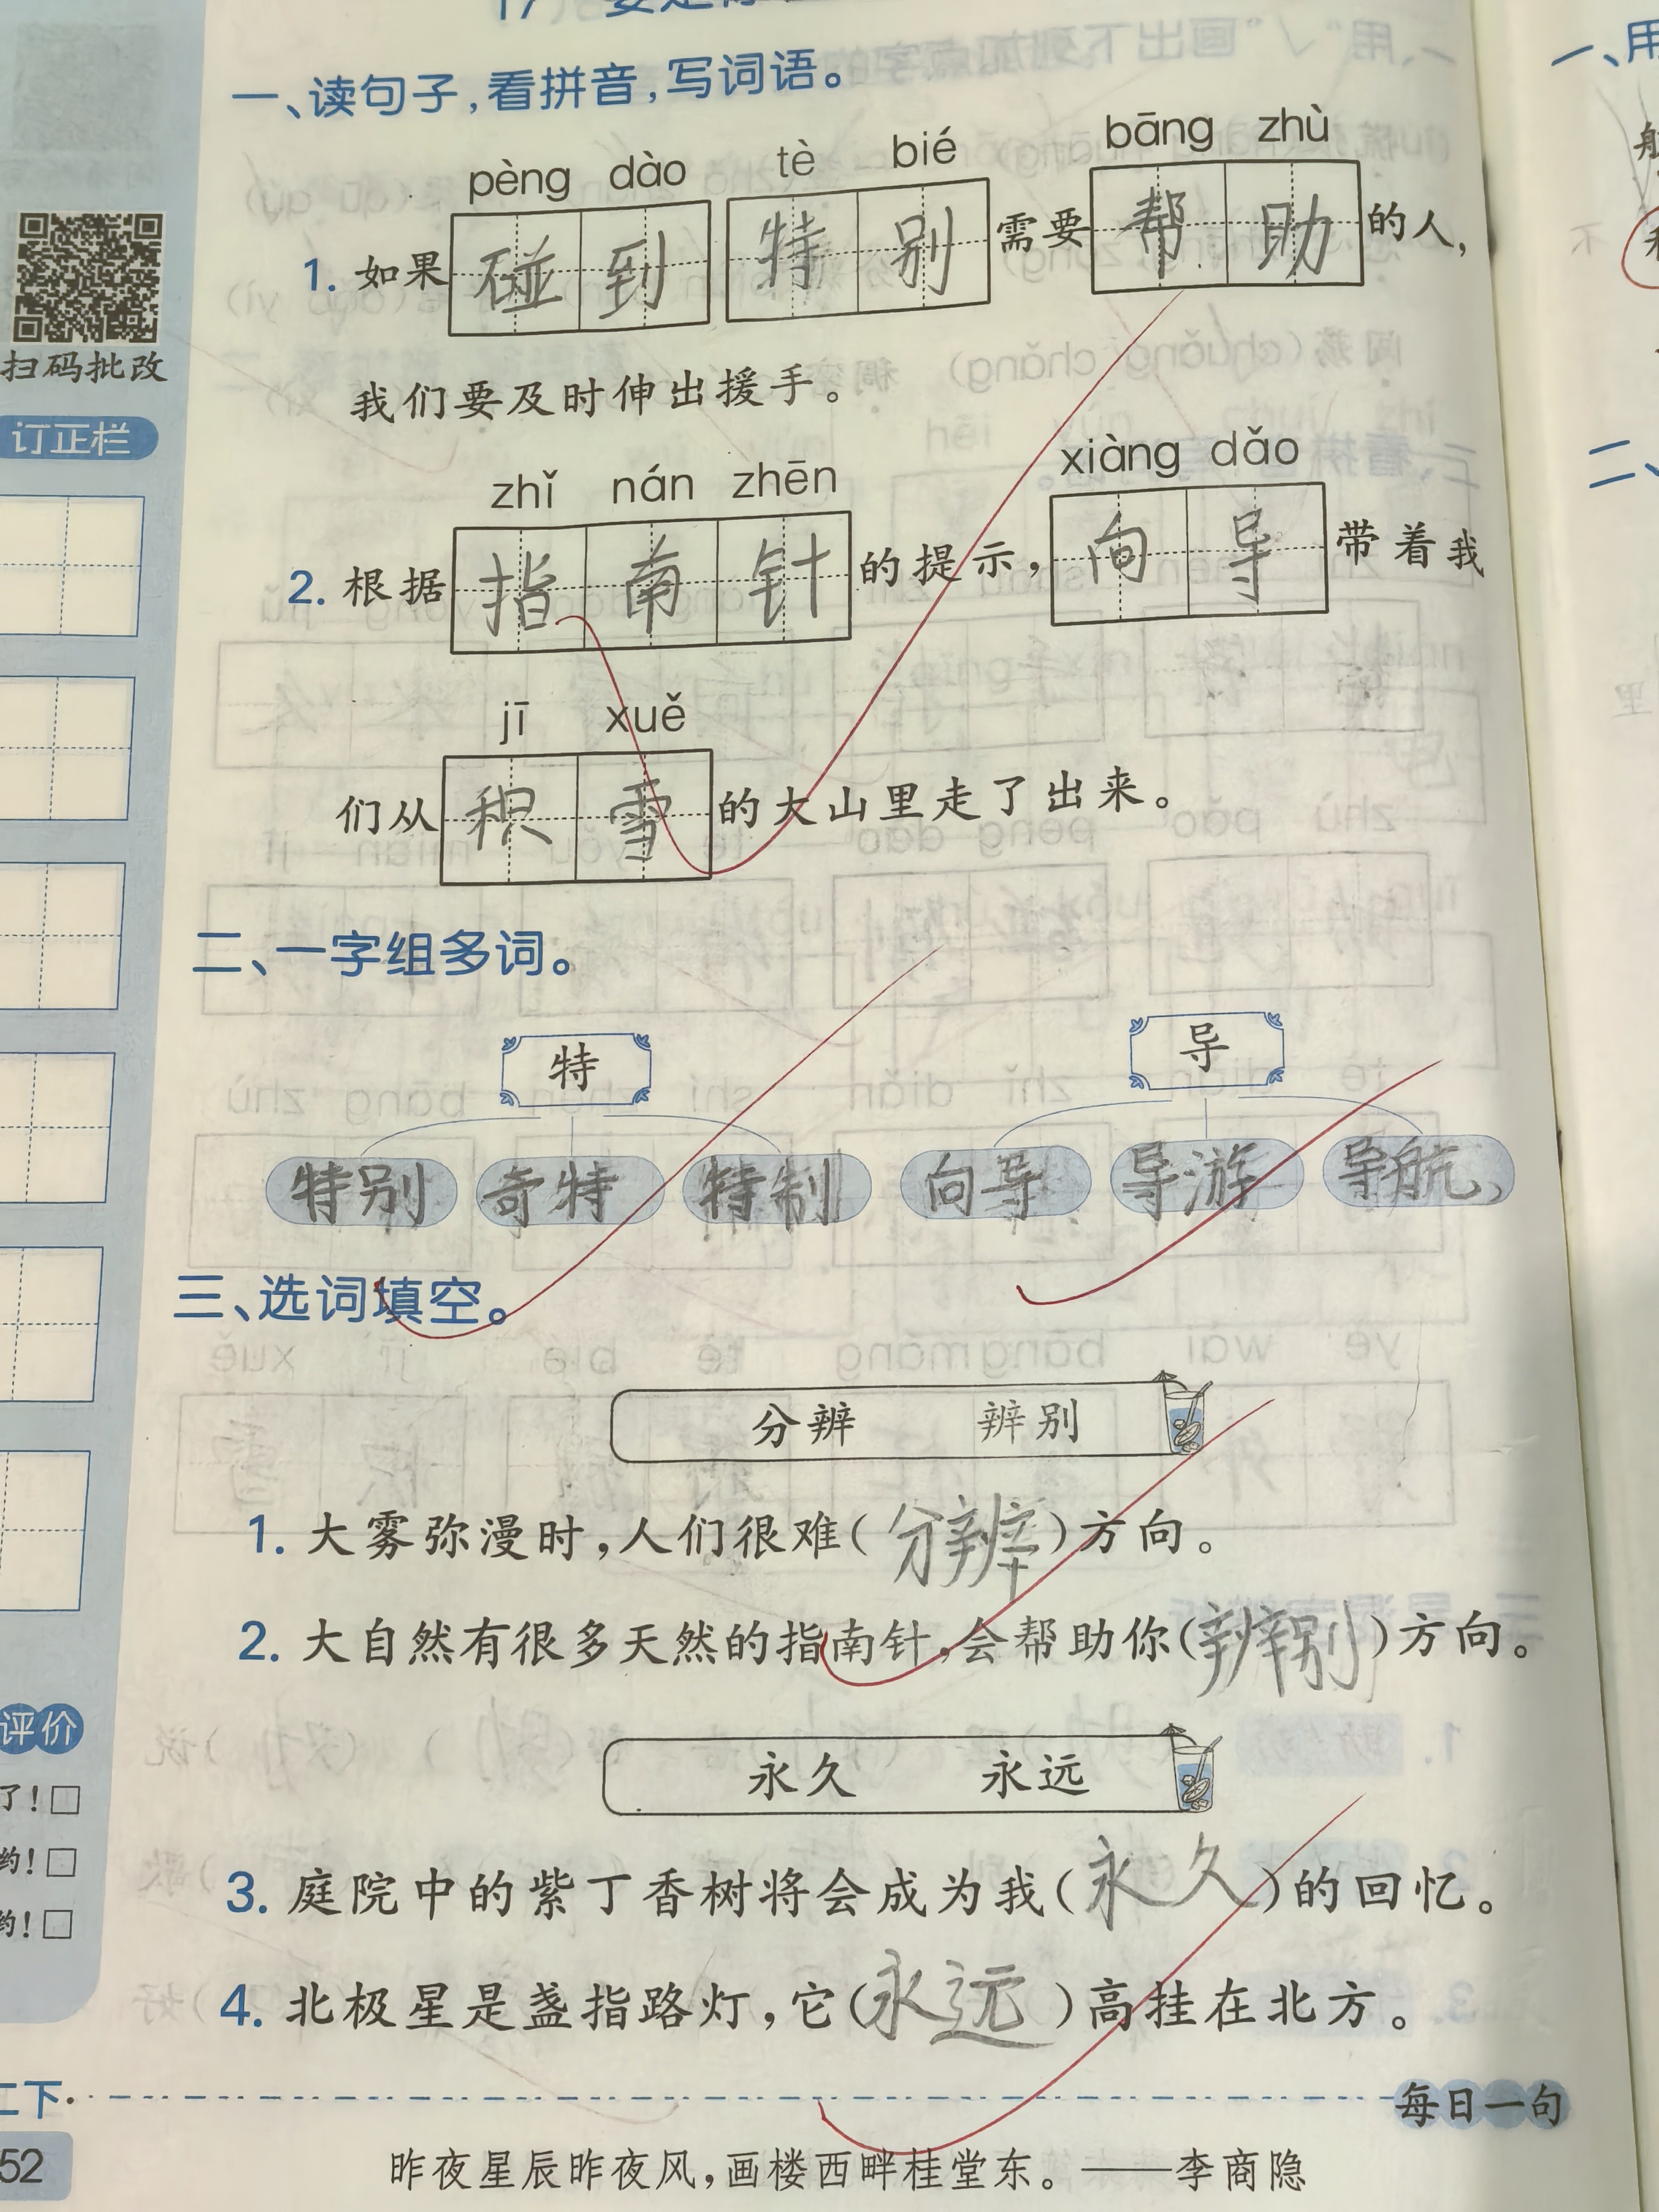 一、读句子,看拼音,写词语。
pèng dào tè bié bāng zhù
1. 如果碰到特别需要帮助的人,
我们要及时伸出援手。
zhǐ nán zhēn xiàng dǎo
2. 根据指南针的提示,向导带着我
jī xuě
们从积雪的大山里走了出来。
二、一字组多词。
特 导
特别 奇特 特制 向导 导游 导航
三、选词填空。
分辨 辨别
1. 大雾弥漫时,人们很难(分辨)方向。
2. 大自然有很多天然的指南针,会帮助你(辨别)方向。
永久 永远
3. 庭院中的紫丁香树将会成为我(永久)的回忆。
4. 北极星是盏指路灯,它(永远)高挂在北方。
每日一句
昨夜星辰昨夜风,画楼西畔桂堂东。——李商隐
扫码批改
订正栏
评价
了!□
约!□
约!□
二下·
52
一、用
二、